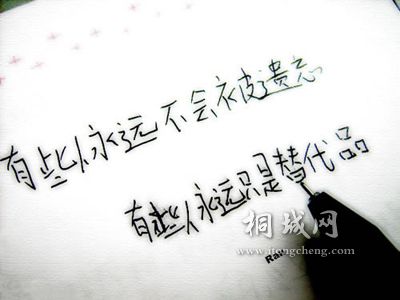 有些人永远不会被遗忘
有些人永远只是替代品
桐城网
www.itongcheng.com